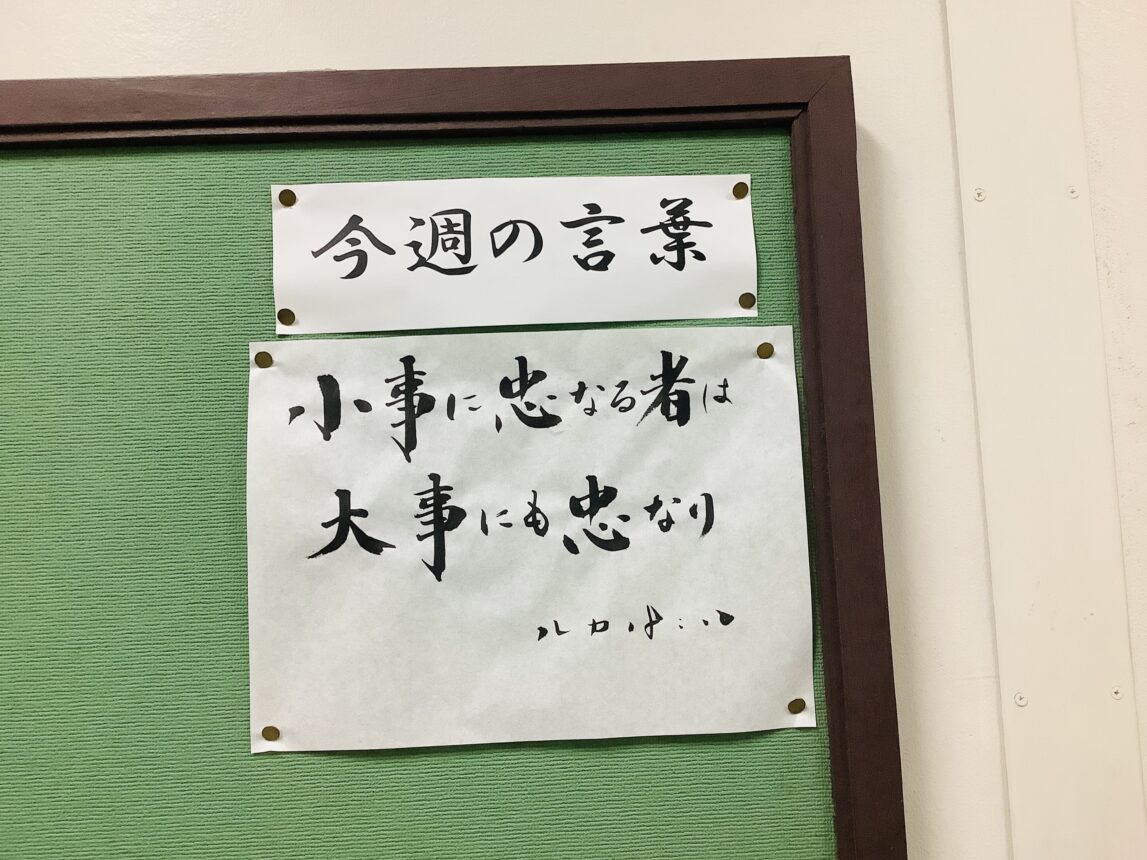 今週の言葉
小事に忠なる者は
大事にも忠なり
ルカ